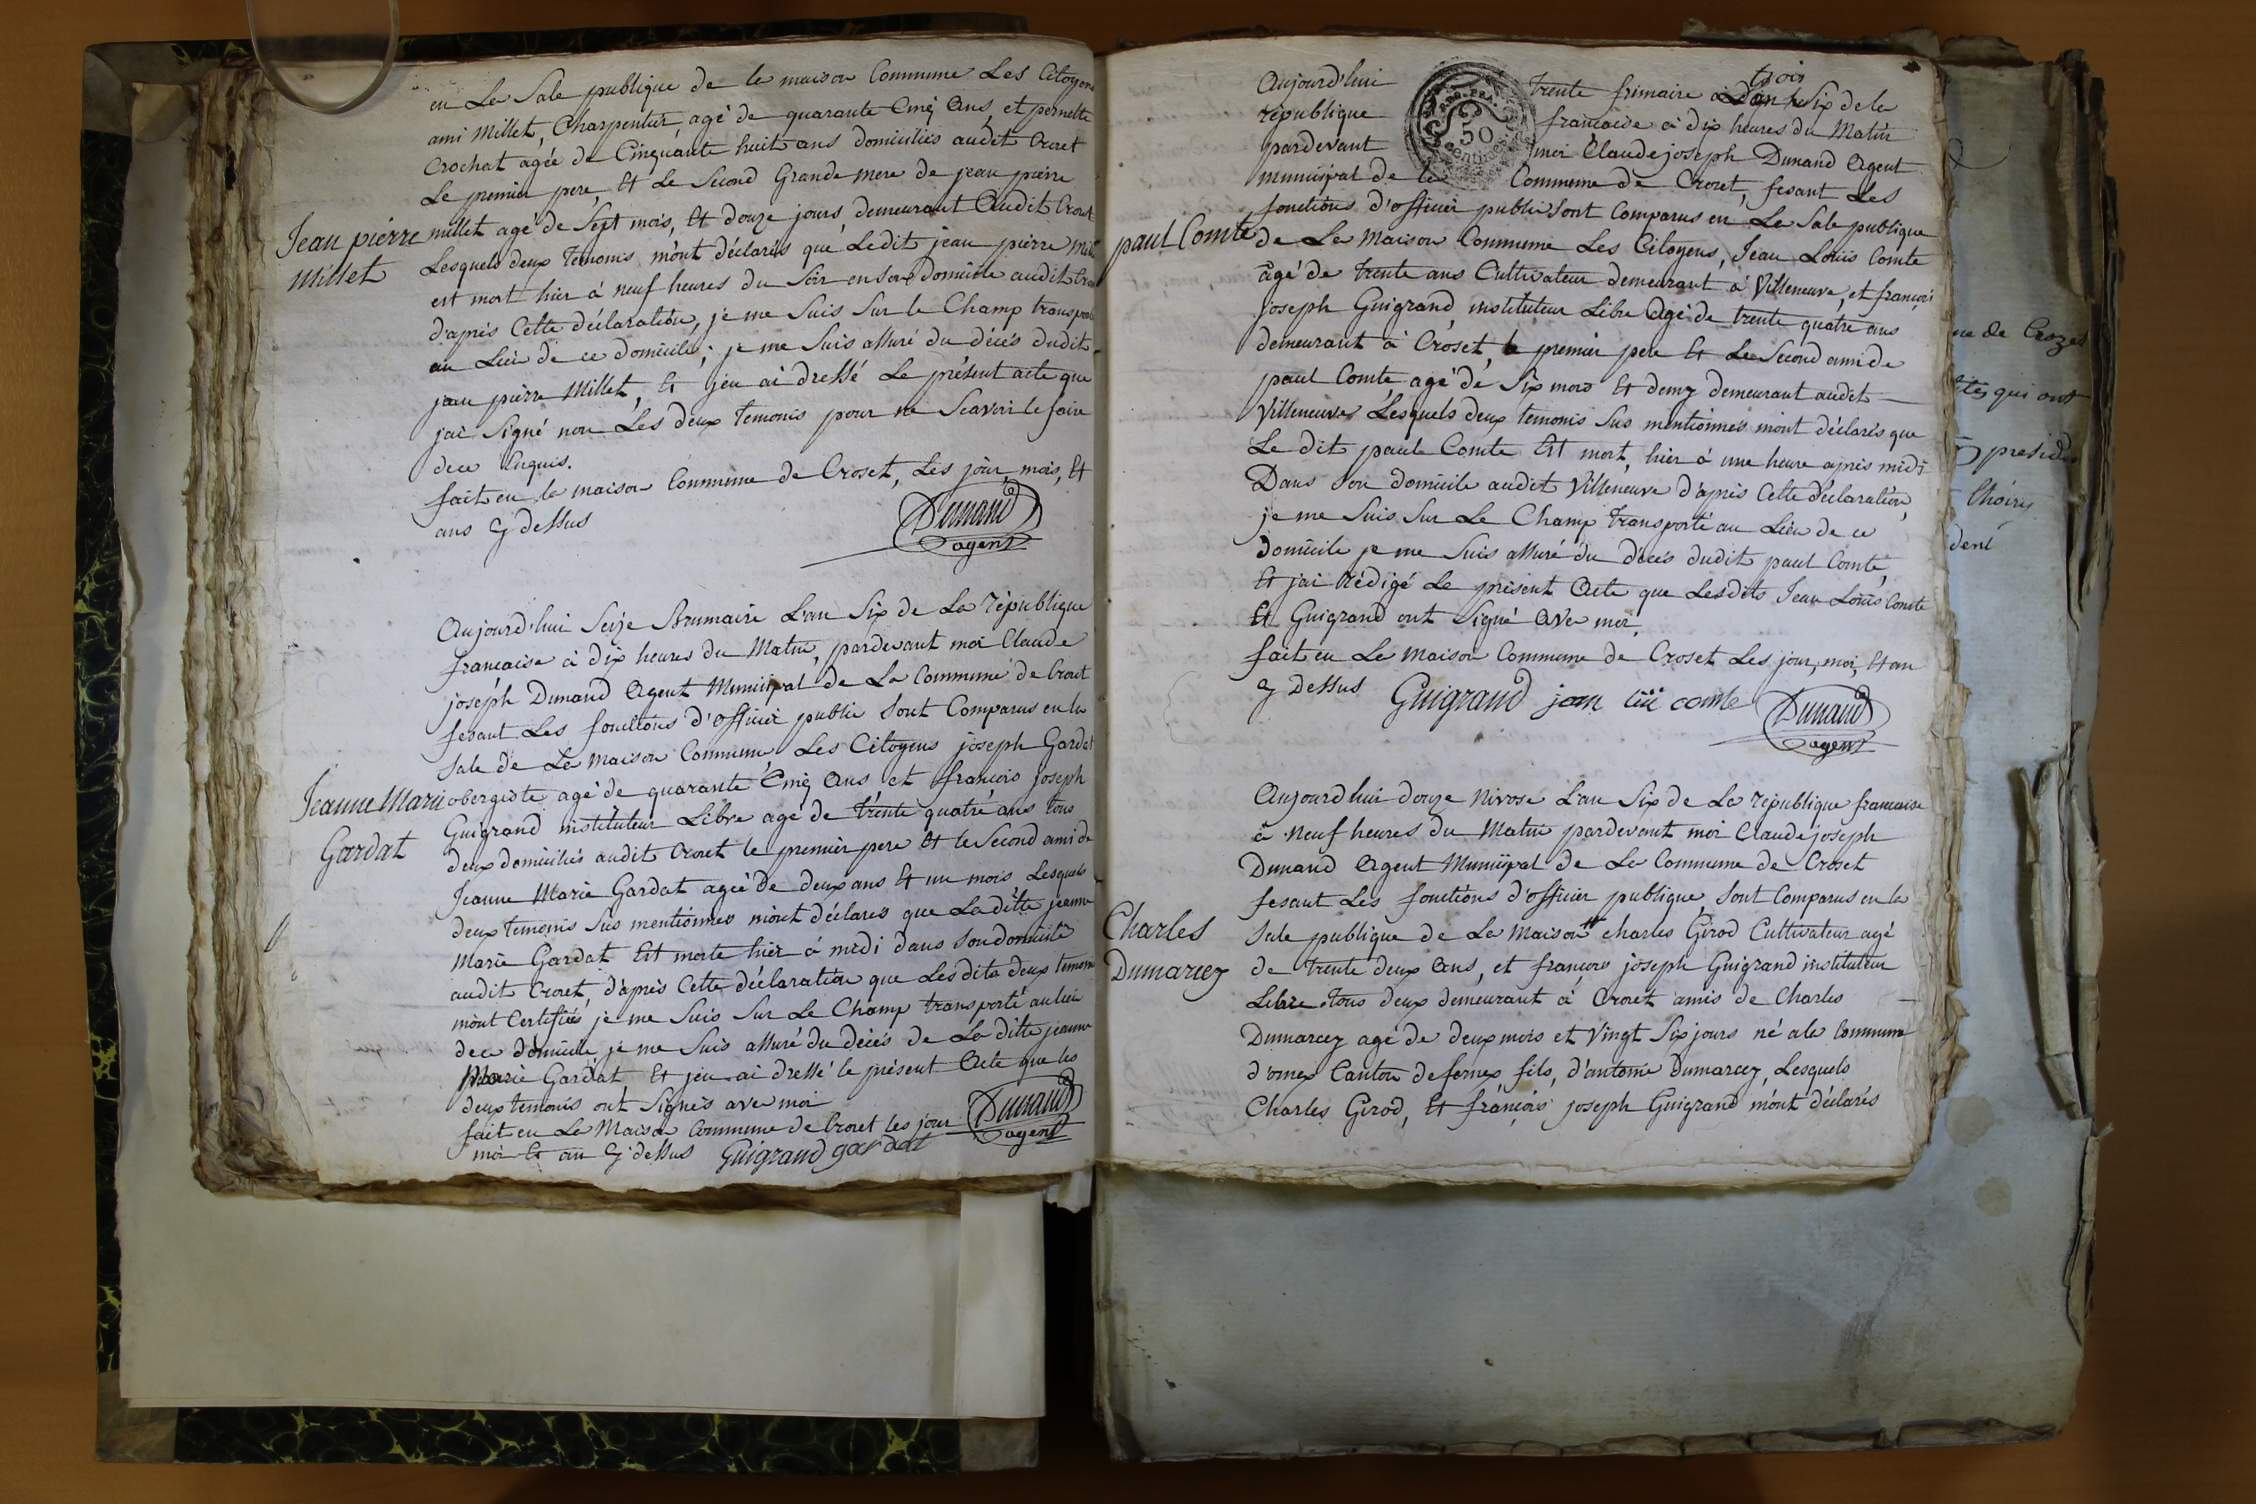 en La Sale publique de la maison Commune Les Citoyens
ami Millet, Charpentier, agé de quarante Cinq Ans, et pernette
Crochat agée de Cinquante huit ans domiciliés audit Croset
Le premier pere, Et Le Second Grande mere de jean pierre
Jean pierre
Millet
millet agé de Sept mois, Et douze jours demeurant Audit Croset
Lesquels deux Temonis m'ont déclarés que Ledit jean pierre
est mort hier à neuf heures du Soir en son domicile audit
d'après Cette déclaration, je me Suis Sur le Champ transporté
au Lieu de ce domicile, je me Suis assuré du décés dudit
jean pierre Millet, Et j'en ai dressé Le présent acte que
jai Signé non Les deux Temonis pour ne Scavoir le faire
dece Requis.
fait en la maison Commune de Croset, Les jour, mois, Et
ans Cy dessus
Dunand
agent
Aujourd'hui Seize Brumaire L'an Six de La république
francaise à dix heures du Matin, pardevant moi Claude
joseph Dunand Agent Municipal de La Commune de Croset
fesant Les fonctions d'officier public Sont Comparus en la
Sale de La maison Commune Les Citoyens joseph Gardat
Jeanne Marie
Gardat
obergiste agé de quarante Cinq Ans et francois joseph
Guigrand instituteur Libre agé de trente quatre ans tous
deux domiciliés audit Croset le premier pere Et le Second ami de
Jeanne Marie Gardat ageé de deux ans Et un mois Lesquels
deux temonis Sus mentionnes m'ont déclares que La ditte jeanne
Marie Gardat Est morte hier à midi dans Son domicile
audit Croset, d'après Cette déclaration que Lesdits deux temonis
m'ont Certifiés je me Suis Sur Le Champ transporté au lieu
dece domicile, je me Suis assuré du décés de La ditte jeanne
Marie Gardat Et j'en ai dressé le présent Acte que les
deux temonis ont Signés avec moi
fait en La Maison Commune de Croset les jour
moi Et an Cy dessus
Guigrand gardat
Dunand
agent
Aujourd'hui trente frimaire trois Six de la
république francaise à dix heures du Matin
pardevant moi Claude joseph Dunand Agent
municipal de la Commune de Croset, fesant Les
50
Centimes
fonctions d'officier public Sont Comparus en La Sale publique
paul Comte
de La Maison Commune Les Citoyens, Jean Louis Comte
âgé de trente ans Cultivateur demeurant à Villeneuve, et françois
joseph Guigrand instituteur Libre Agé de trente quatre ans
demeurant à Croset, le premier pere Et Le Second ami de
paul Comte agé de Six mois Et demy demeurant audit
Villeneuve Lesquels deux temonis Sus mentionnés m'ont déclarés que
Le dit paul Comte Est mort, hier à une heure après midi
Dans Son domicile audit Villeneuve d'après Cette déclaration,
je me Suis Sur Le Champ transporté au Lieu de ce
domicile je me Suis assuré du déces dudit paul Comte
Et j'ai Rédigé Le présent Acte que Lesdits Jean Louis Comte
Et Guigrand ont Signé Avec moi,
fait en La maison Commune de Croset Les jour, moi, Et an
Cy Dessus
Guigrand jean comte
Dunand
agent
Aujourd'hui douze Nivose L'an Six de La république francaise
à Neuf heures du Matin pardevant moi Claude joseph
Dunand Agent Municipal de La Commune de Croset
fesant Les fonctions d'officier publique, Sont Comparus en la
Charles
Dumarcey
Sale publique de La Maison charles Girod Cultivateur agé
de trente deux Ans, et françois joseph Guigrand instituteur
Libre tous deux demeurant à Croset amis de Charles
Dumarcey agé de deux mois et Vingt Six jours né a la Commune
d'ornex Canton de fernex fils, d'antoine Dumarcey, Lesquels
Charles Girod, Et françois joseph Guigrand m'ont déclarés
de Crozet
qui ont
presid
Choiry
dent